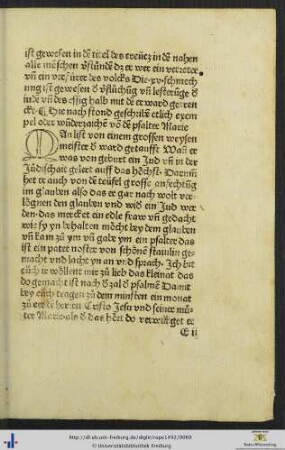 ist gewesen in dē titel des creücz in dē nahen
alle mēschen v̄stūndē dz er wer ein verreter
vn̄ ein verfürer des volcks Die·xv·schmech
ung ist gewesen ď v̄flüchūg vn̄ lesterūge ď
iudē vn̄ des essig halb mit dē er ward getren
cket· Hie nach stond geschribē etlich exem
pel oder wūderzaichē vō dē psalter Marie
MAn list von einem grossen weysen
meister ď ward getaufft· Wañ er
was von geburt ein Jud vn̄ in der
Jüdischait gelert auff das höchst· Darum̄
het er auch von dē teüfel grosse anfechtūg
im glauben also das er gar nach wolt ver
lögnen den glauben vnd wid̄ ein Jud wer
den·das mercket ein edle fraw vn̄ gedacht
wie sy yn behalten möcht bey dem glauben
vn̄ kam zū ym vn̄ gabe ym ein psalter das
ist ein pater noster von schönē stainlin ge
macht vnd lacht yn an vn̄ sprach· Jch bit
eüch ir wöllent mir zū lieb das kleinat das
do gemacht ist nach ď zal ď psalmē Damit
bey eüch tragen zū dem minsten ein monat
zū ere dē herren Cristo Jesu vnd seiner mū
ter Marie·als ď das hört do verwilget er
E ii
http://dl.ub.uni-freiburg.de/diglit/rupe1492/0069
© Universitätsbibliothek Freiburg